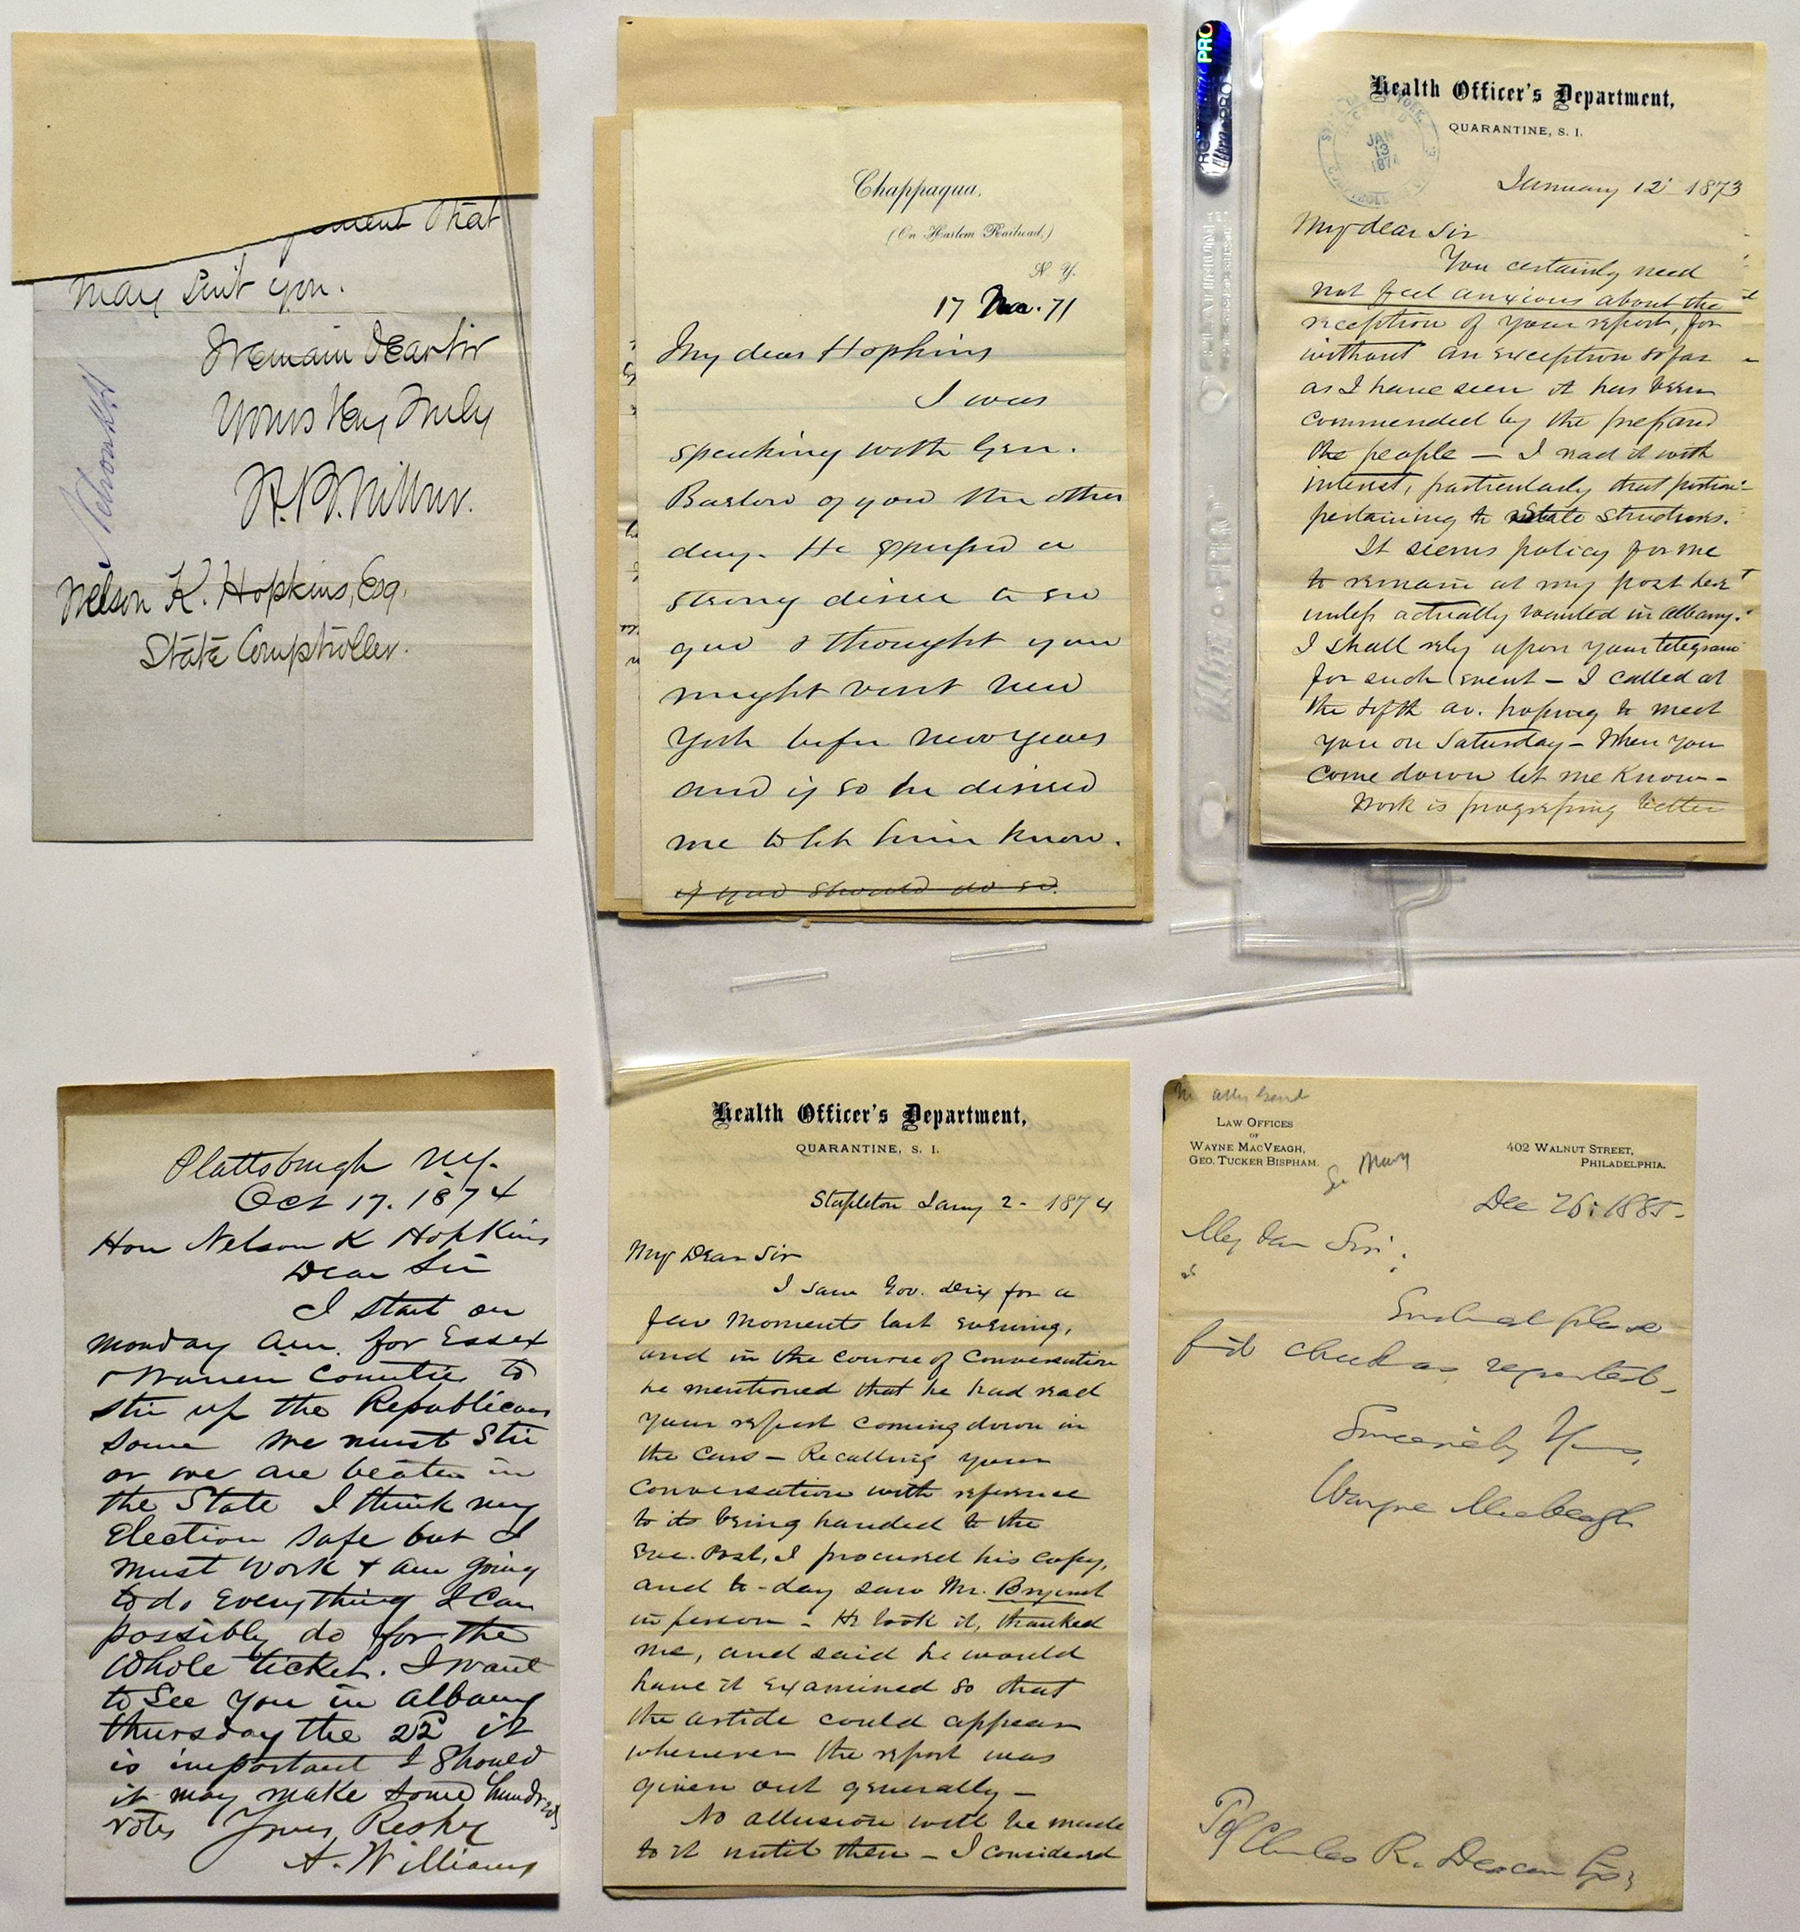 that
may suit you.
I remain Dear Sir
Yours Very Truly
Nelson K. Hopkins, Esq.
State Comptroller.
Chappaqua,
(On Harlem Railroad,)
N. Y.
17 71
My dear Hopkins
I was
speaking with Gen.
Barlow of you the other
day. He expressed a
strong desire to see
you & thought you
might visit New
York before New Years
and if so he desired
me to let him know.
if you should do so.
PRO
Health Officer's Department,
QUARANTINE, S. I.
JAN 13 1874
January 12 1873
My dear Sir
You certainly need
not feel anxious about the
reception of your report, for
without an exception so far
as I have seen it has been
commended by the press and
the people — I read it with
interest, particularly that portion
pertaining to State Structures.
It seems policy for me
to remain at my post here
unless actually wanted in Albany.
I shall rely upon your telegram
for such event — I called at
the Fifth av. hoping to meet
you on Saturday — When you
come down let me know —
Work is progressing better
Plattsburgh NY.
Oct 17. 1874
Hon Nelson K Hopkins
Dear Sir
I start on
Monday a.m. for Essex
& Warren Counties to
stir up the Republicans
some we must stir
or we are beaten in
the State I think my
Election safe but I
must work & am going
to do Everything I can
possibly do for the
whole ticket. I want
to see you in Albany
Thursday the 22d it
is important I should
it may make some hundreds
votes Yours Respy
A. Williams
Health Officer's Department,
QUARANTINE, S. I.
Stapleton Jany 2 - 1874
My Dear Sir
I saw Gov. Dix for a
few moments last evening,
and in the course of Conversation
he mentioned that he had read
your report coming down in
the Cars — Recalling your
Conversation with reference
to its being handed to the
Eve. Post, I procured his copy,
and to-day saw Mr. Bryant
in person - He took it, thanked
me, and said he would
have it examined so that
the article could appear
whenever the report was
given out generally —
No allusion will be made
to it until then — I considered
LAW OFFICES
OF
WAYNE MACVEAGH,
GEO. TUCKER BISPHAM.
402 WALNUT STREET,
PHILADELPHIA.
Dec 1885.
My dear Sir:
Enclosed please
find check as requested.
Sincerely Yours,
Wayne MacVeagh
To Charles R. Deacon Esq